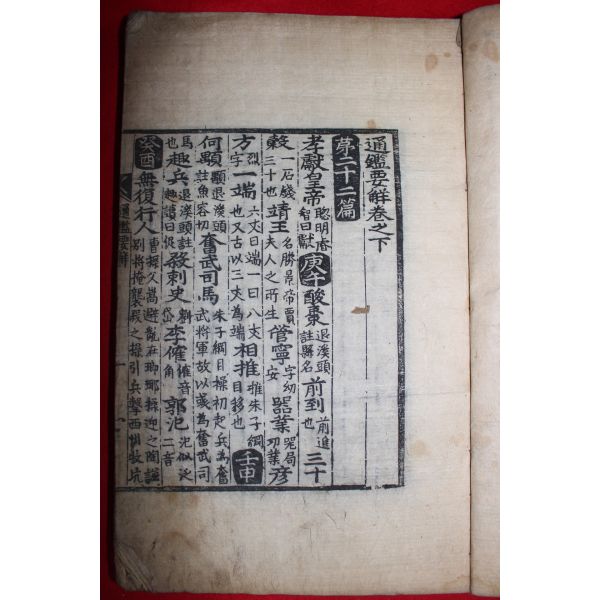 通鑑要解卷之下
第二十二篇
孝獻皇帝 聰明睿智曰獻 庚午 酸棗 退溪頭註縣名 前到 前進也 三十
穀 一石錢三十也 靖王 名勝景帝賈夫人之所生 管寧 字幼安 器業 器局功業 彦
方 字烈 一端 六丈曰端一曰八丈也又古以二丈為端 相推 推朱子綱目移也 壬申
何顒 顒退溪頭註魚容切 奮武司馬 朱子綱目操初起兵為奮武將軍故以箴為奮武司
馬也 趣兵 退溪頭註趣讀曰促 殺刺史 劉岱 李傕 傕音角 郭汜 汜似泛二音
癸酉 無復行人 曹操父嵩避亂在瑯琊操迎之陶謙別將掩襲殺之操引兵擊
通鑑要解